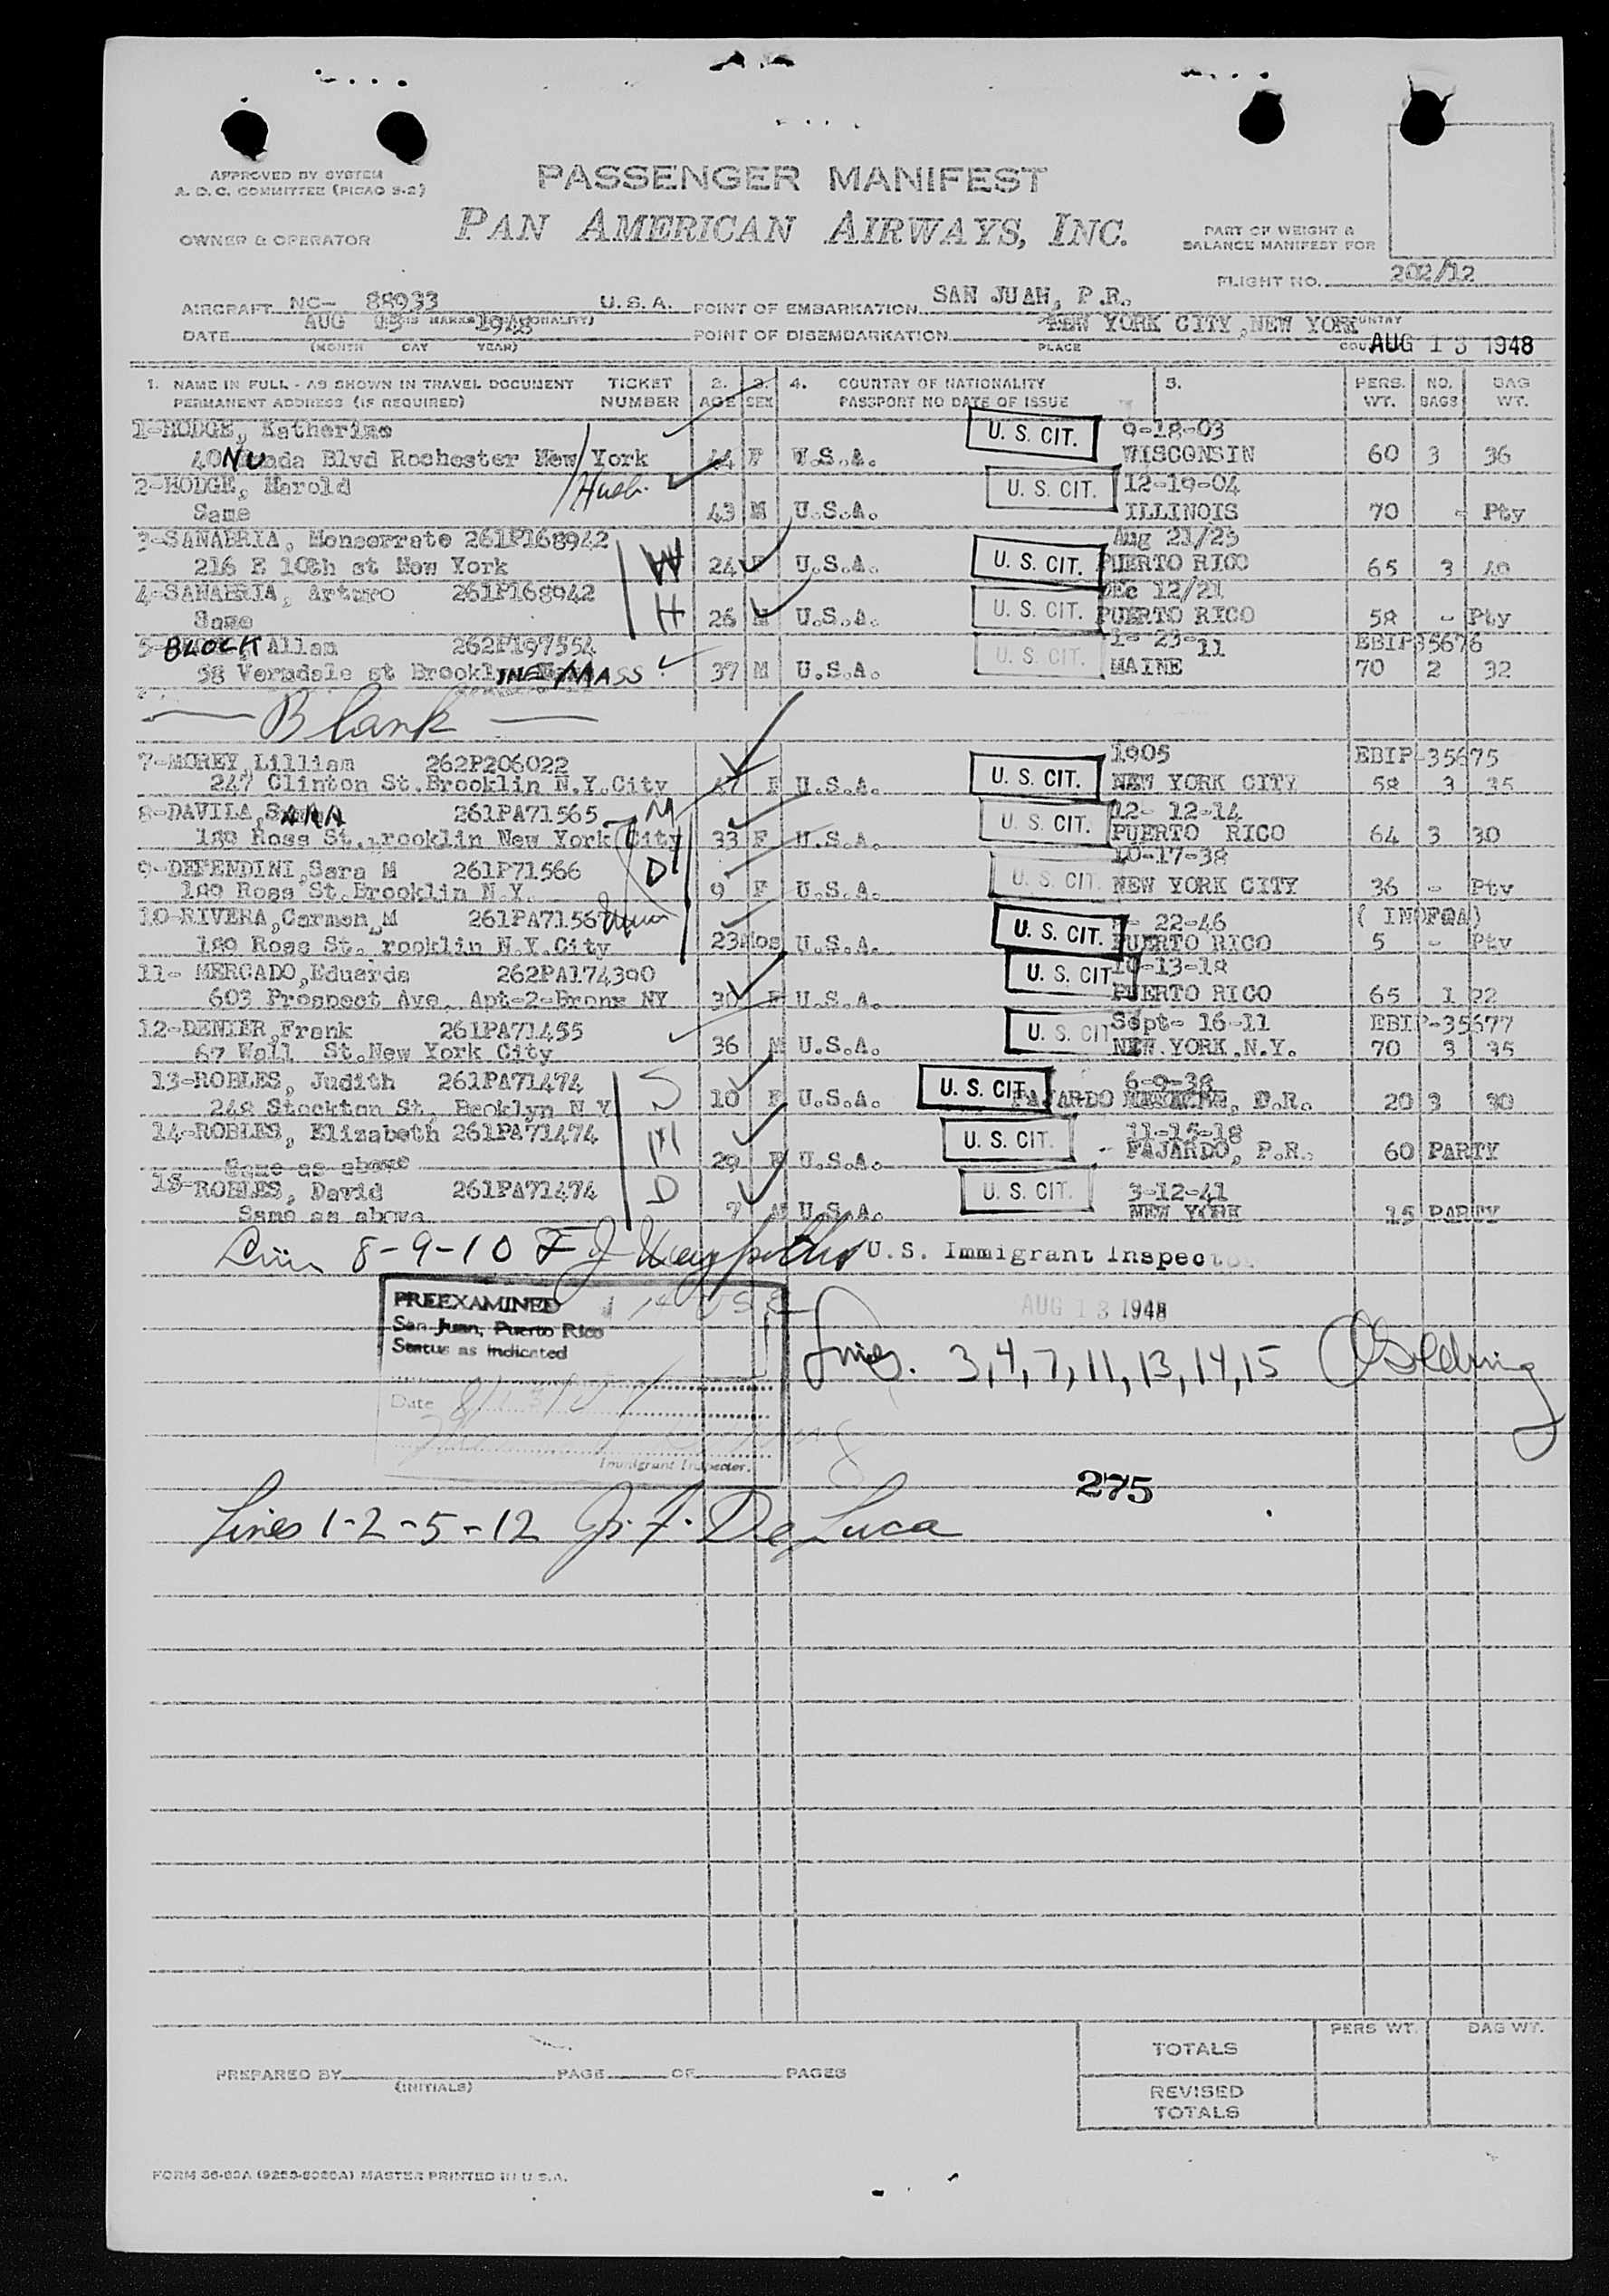 APPROVED BY SYSTEM
A. D. C. COMMITTEE (PICAO 9-2)
PASSENGER MANIFEST
OWNER & OPERATOR
PAN AMERICAN AIRWAYS, INC.
PART OF WEIGHT &
BALANCE MANIFEST FOR
FLIGHT NO. 202/12
AIRCRAFT NC- 88933 U. S. A. POINT OF EMBARKATION SAN JUAN, P.R.
DATE AUG 13 1948 POINT OF DISEMBARKATION NEW YORK CITY, NEW YORK
(MONTH DAY YEAR) PLACE AUG 13 1948
1. NAME IN FULL - AS SHOWN IN TRAVEL DOCUMENT TICKET 2. 3. 4. COUNTRY OF NATIONALITY 5. PERS. NO. BAG
PERMANENT ADDRESS (IF REQUIRED) NUMBER AGE SEX PASSPORT NO DATE OF ISSUE WT. BAGS WT.
1-HODGE, Katherine U. S. CIT. 9-18-03
Blvd Rochester New York 44 F U.S.A. WISCONSIN 60 3 36
2-HODGE, Harold Husb. U. S. CIT. 12-19-04
Same 43 M U.S.A. ILLINOIS 70 - Pty
3-SANABRIA, Monserrate 261P168942 W U. S. CIT. Aug 21/23
216 E 10th st New York 24 F U.S.A. PUERTO RICO 65 3 40
4-SANABRIA, Arturo 261P168942 H U. S. CIT. DEc 12/21
Same 26 M U.S.A. PUERTO RICO 58 - Pty
5-BLOCK Allan 262P197554 U. S. CIT. 1- 23-11 EBIP35676
58 Verndale st Brookline MASS 37 M U.S.A. MAINE 70 2 32
— Blank —
7-MOREY, Lilliam 262P206022 U. S. CIT. 1905 EBIP-35675
247 Clinton St. Brooklin N.Y. City F U.S.A. NEW YORK CITY 58 3 35
8-DAVILA, SARA 261PA71565 M U. S. CIT. 12- 12-14
180 Ross St., rooklin New York City 33 F U.S.A. PUERTO RICO 64 3 30
9-DEFENDINI, Sara M 261P71566 D U. S. CIT. 10-17-38
180 Ross St. Brooklin N.Y. 9 F U.S.A. NEW YORK CITY 36 - Pty
10-RIVERA, Carmen M 261PA71567 U. S. CIT. 22-46 ( INOFQA)
180 Ross St. rooklin N.Y. City 23Mos U.S.A. PUERTO RICO 5 - Pty
11- MERCADO, Eduarda 262PA174390 U. S. CIT 10-13-18
603 Prospect Ave. Apt-2-Bronx NY 30 F U.S.A. PUERTO RICO 65 1 22
12-DENIER, Frank 261PA71455 U. S. CIT Sept- 16-11 EBIP-35677
67 Wall St. New York City 36 M U.S.A. NEW.YORK, N.Y. 70 3 35
13-ROBLES, Judith 261PA71474 S U. S. CIT. 6-9-38
248 Stockton St, Brooklyn N Y 10 F U.S.A. FAJARDO P.R. 20 3 30
14-ROBLES, Elizabeth 261PA71474 M U. S. CIT. 11-15-18
Same as above 29 F U.S.A. FAJARDO, P.R. 60 PARTY
15-ROBLES, David 261PA71474 D U. S. CIT. 3-12-41
Same as above 7 M U.S.A. NEW YORK 15 PARTY
8-9-10 U.S. Immigrant Inspector
PREEXAMINED
San Juan, Puerto Rico
Status as indicated
Date
Immigrant Inspector.
AUG 13 1948
Lines. 3, 4, 7, 11, 13, 14, 15
275
Lines 1-2-5-12 J. F. De Luca
PREPARED BY PAGE OF PAGES
(INITIALS)
PERS WT. BAG WT.
TOTALS
REVISED
TOTALS
FORM MASTER PRINTED IN U S.A.